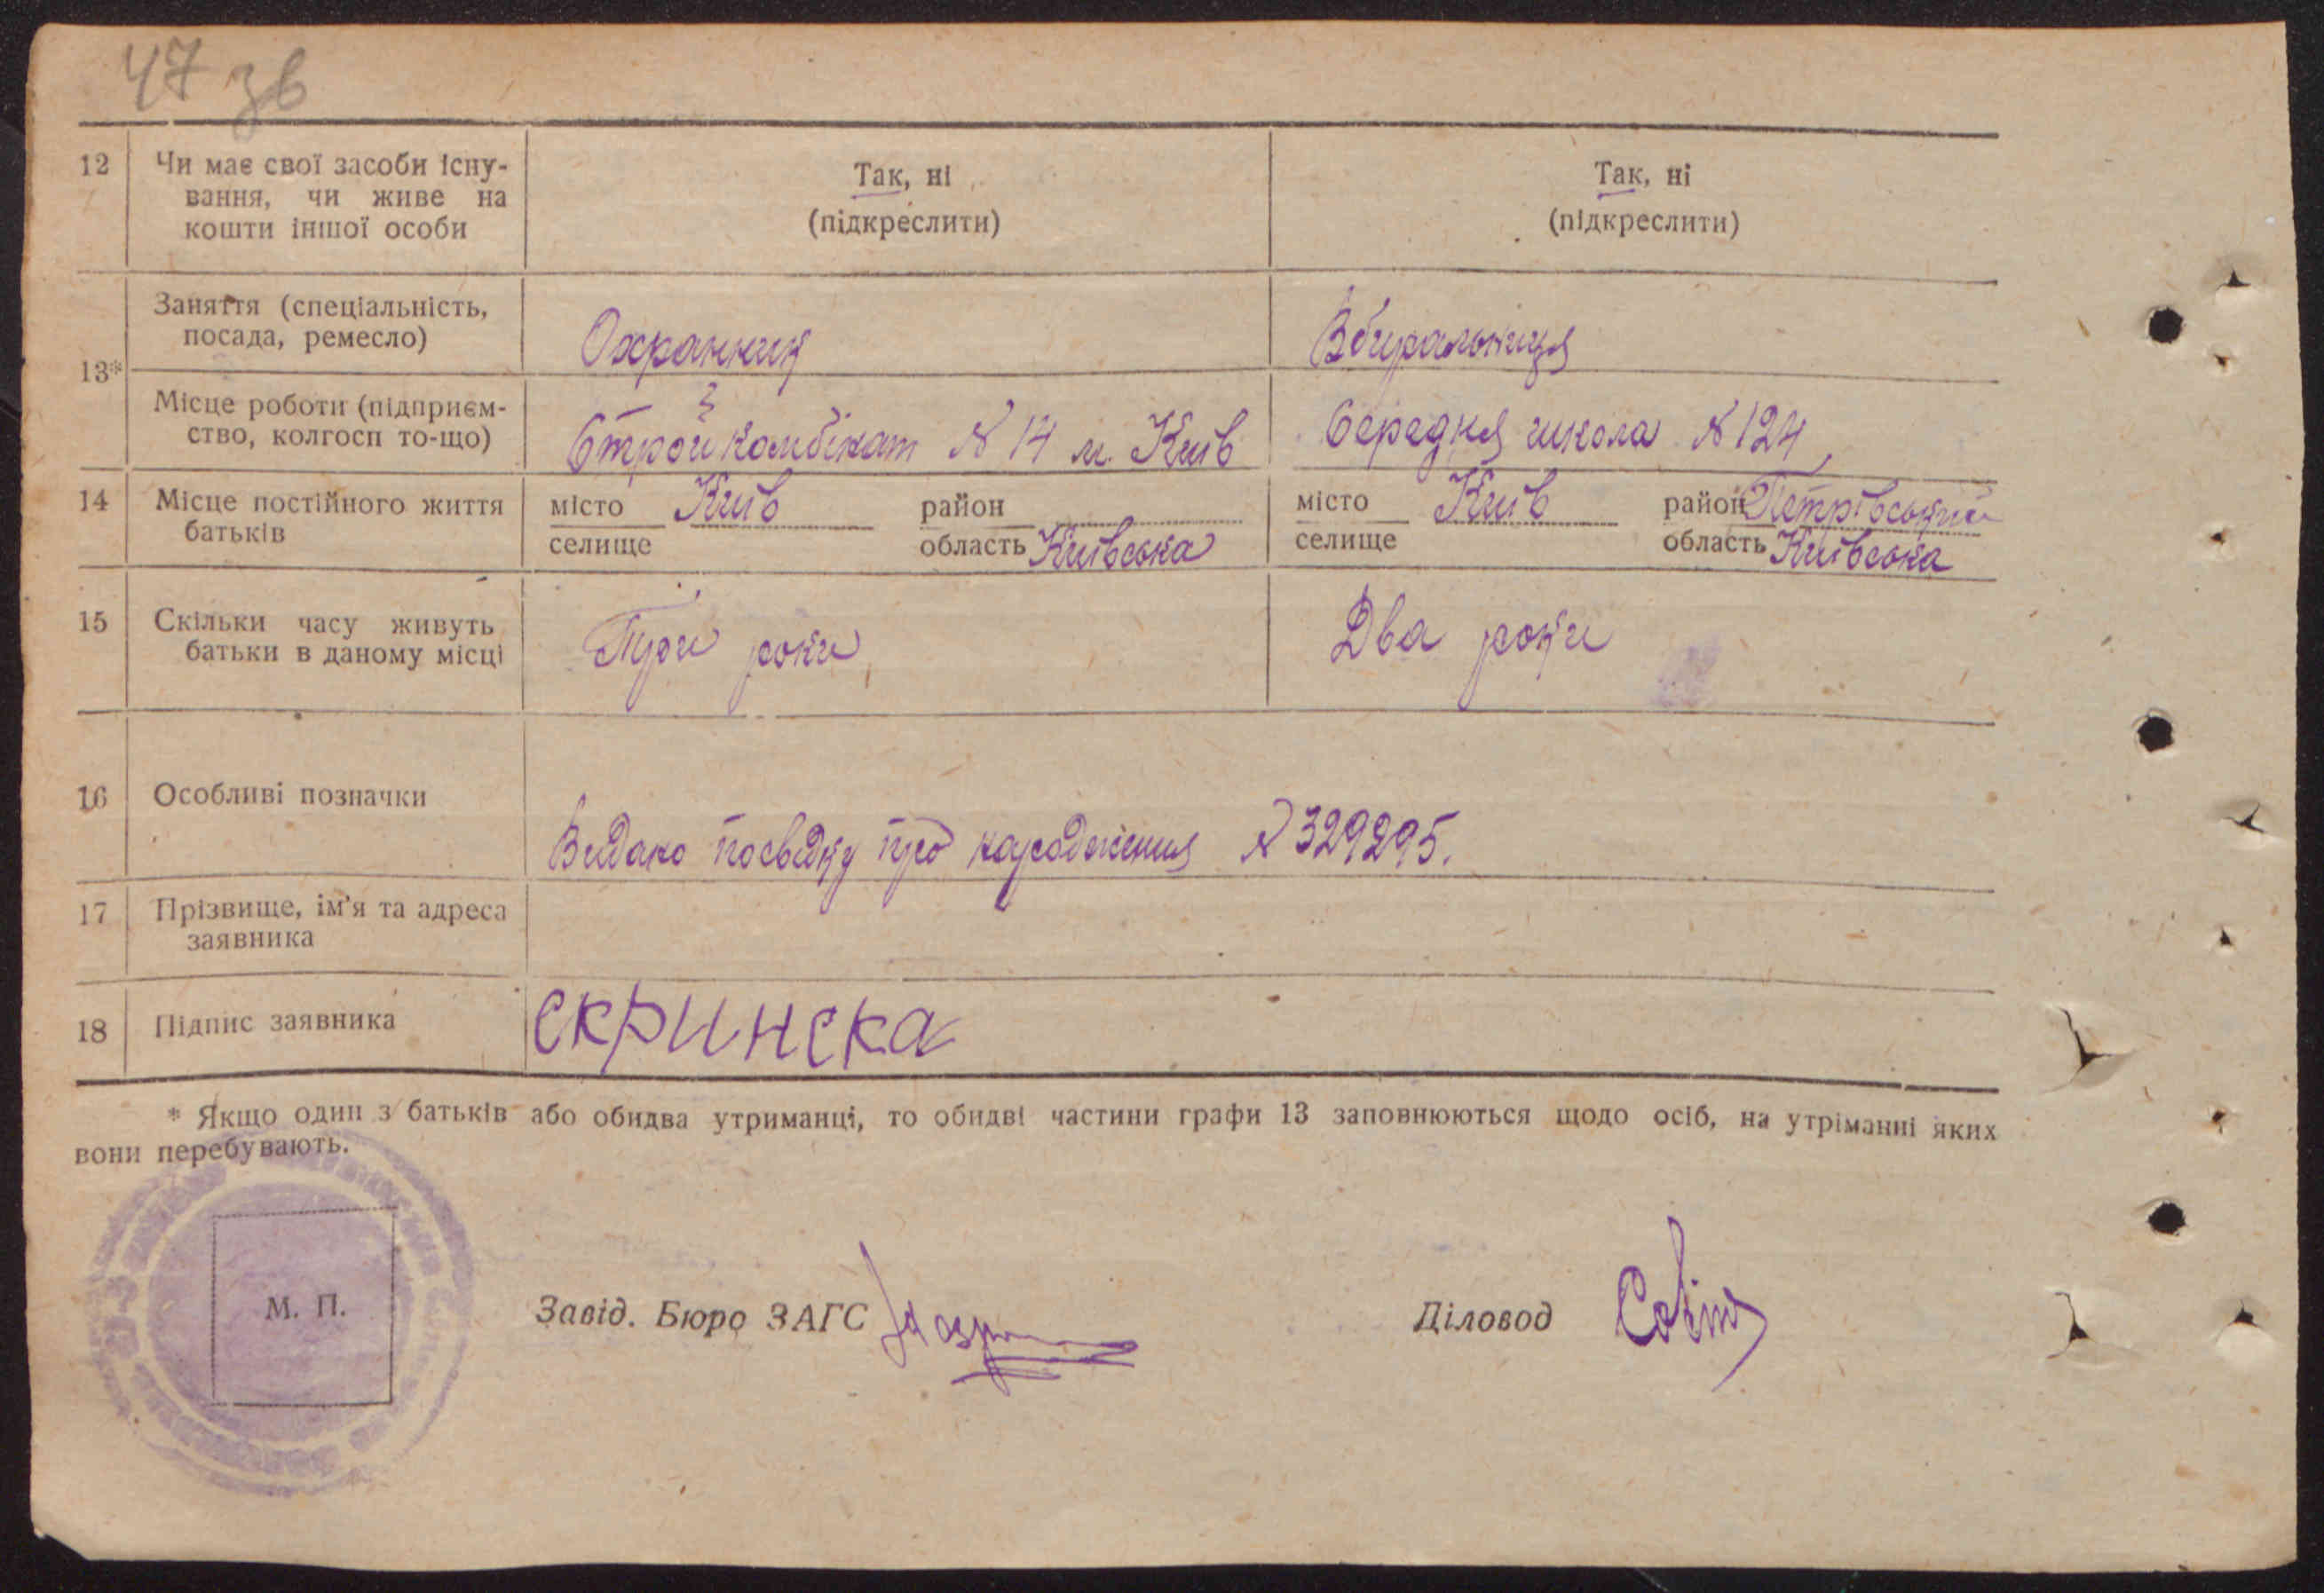 47 зв
12 Чи має свої засоби існу-
вання, чи живе на
кошти іншої особи
Так, ні
(підкреслити)
Так, ні
(підкреслити)
13*
Заняття (спеціальність,
посада, ремесло)
Охранник
Вбиральниця
Місце роботи (підприєм-
ство, колгосп то-що)
Стройкомбікат № 14 м. Київ
Середня школа № 124,
14 Місце постійного життя
батьків
місто Київ район
селище область Київська
місто Київ район Петрівський
селище область Київська
15 Скільки часу живуть
батьки в даному місці
Три роки
Два роки
16 Особливі позначки
Видано посвідку про народження № 329295.
17 Прізвище, ім'я та адреса
заявника
18 Підпис заявника
Скринска
* Якщо один з батьків або обидва утриманці, то обидві частини графи 13 заповнюються щодо осіб, на утріманні яких
вони перебувають.
М. П.
Завід. Бюро ЗАГС
Діловод